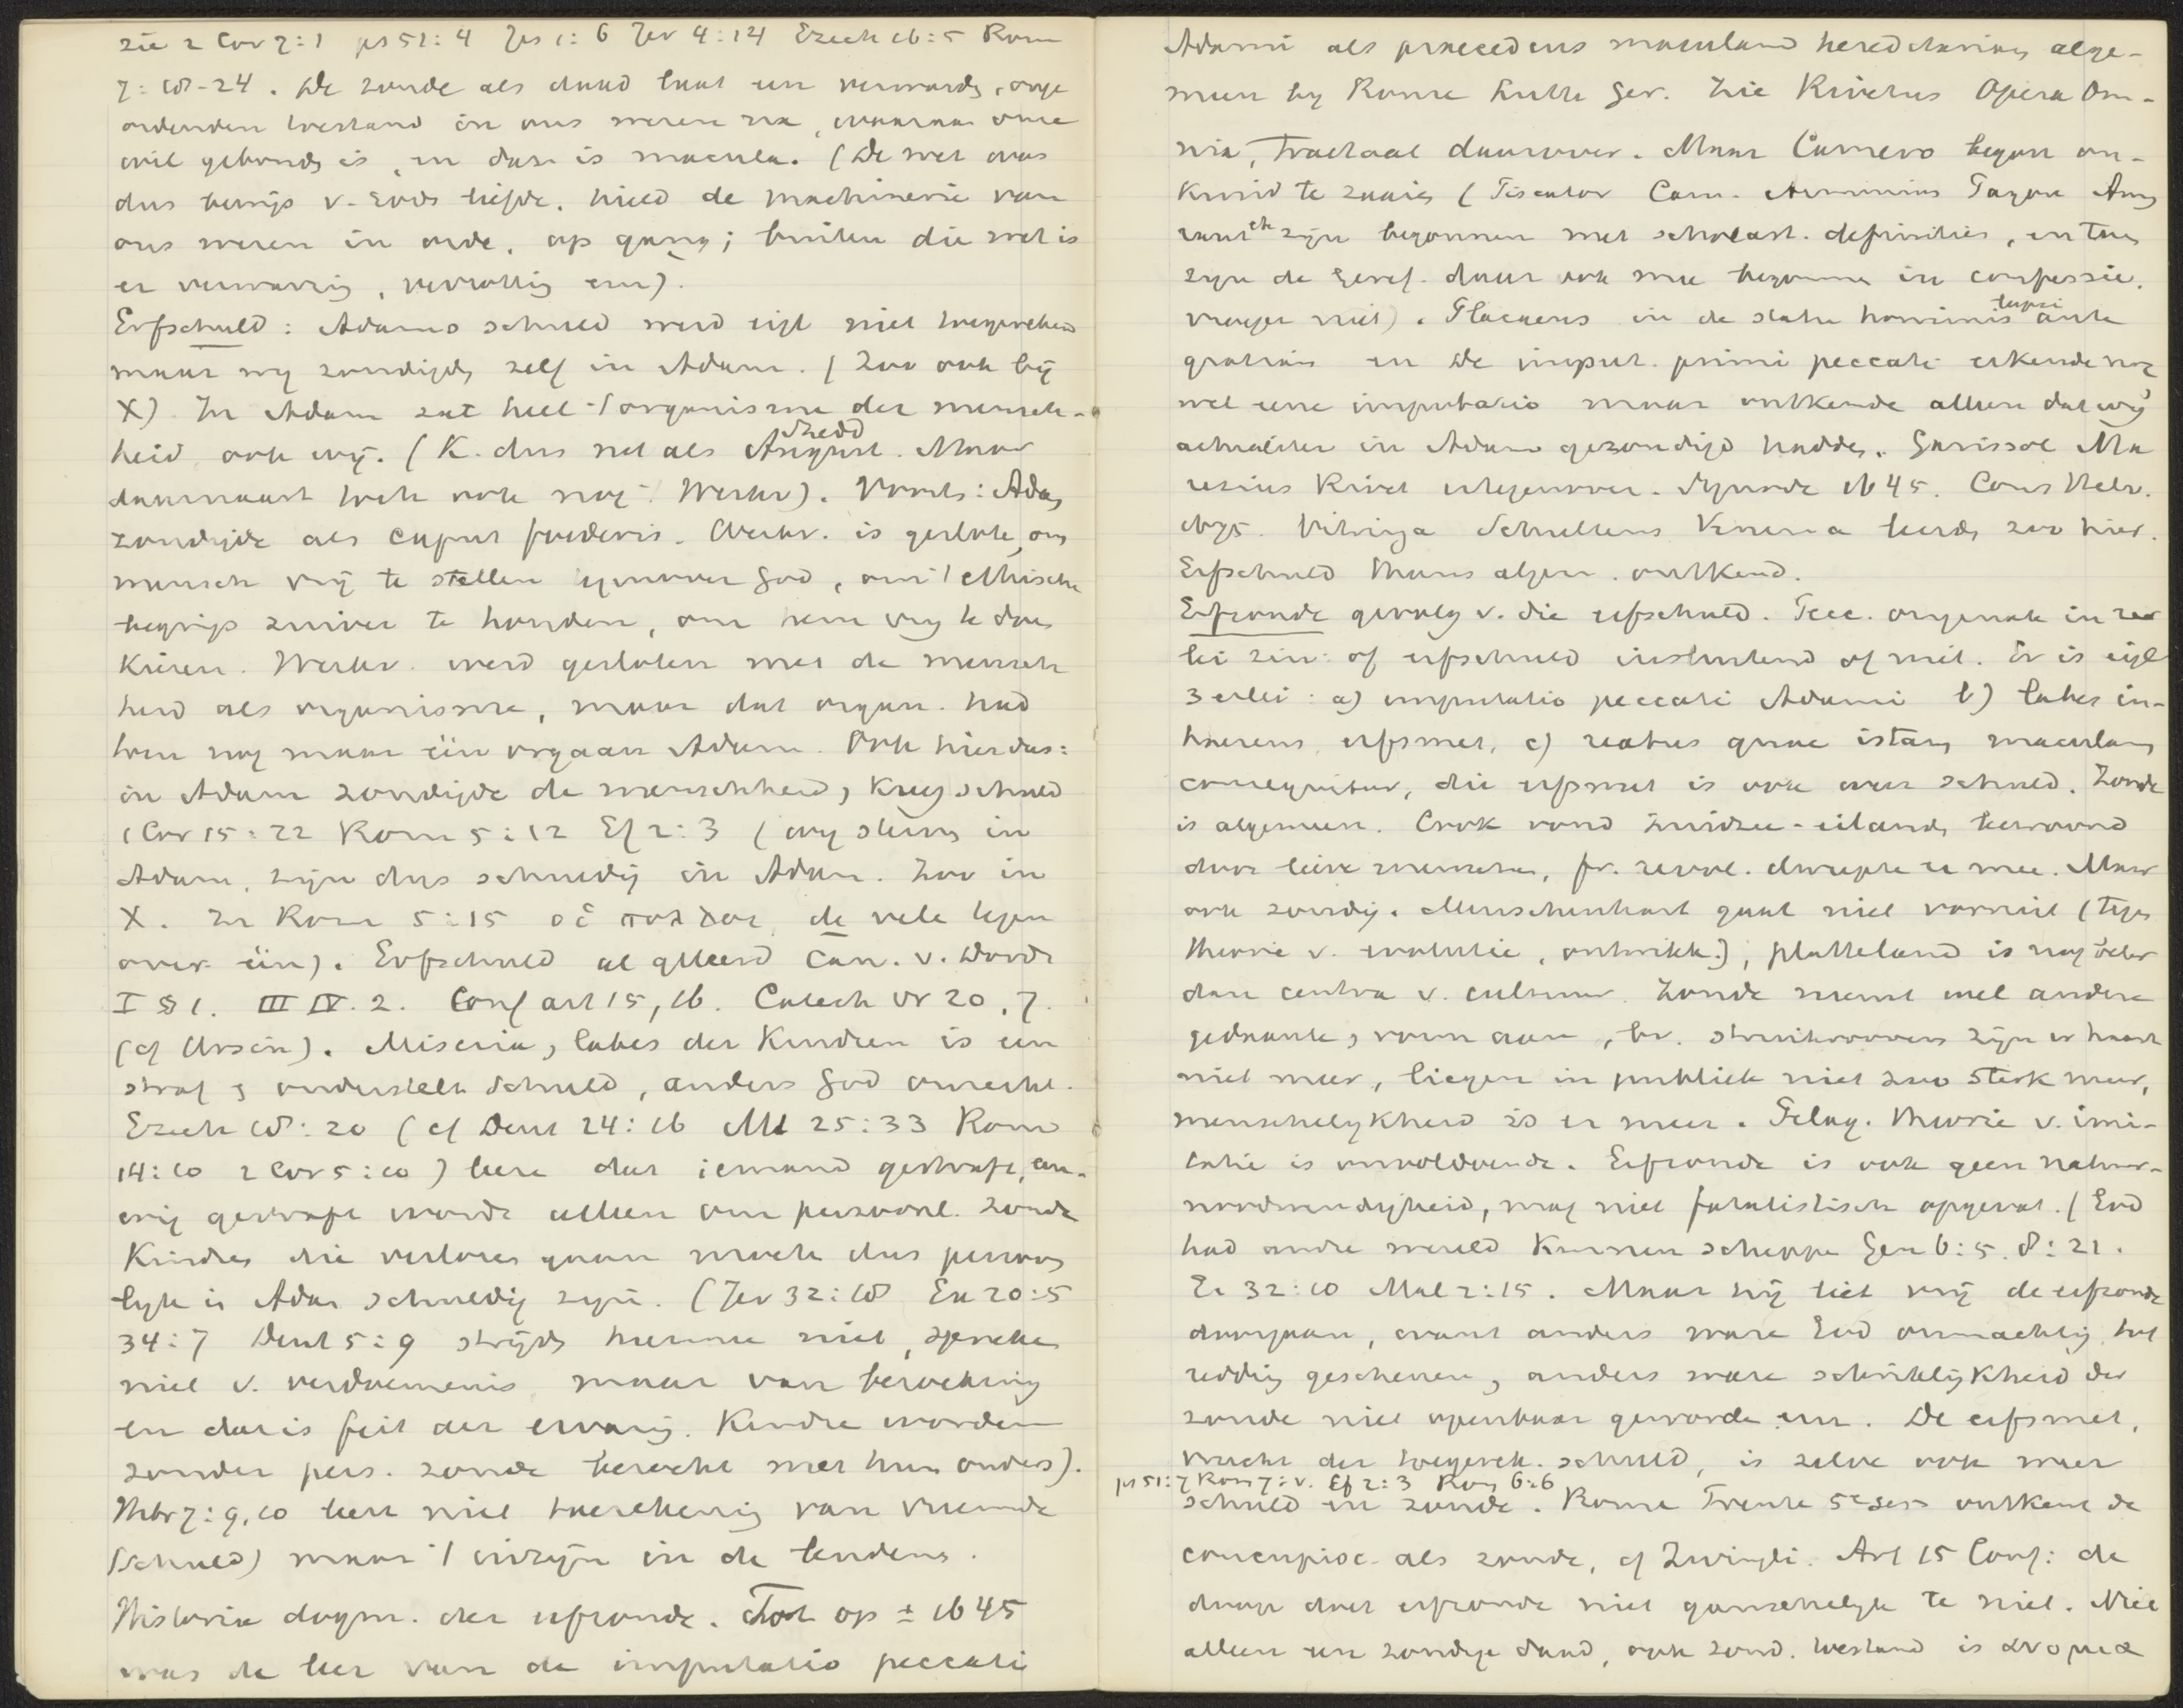 zie 2 Cor 7:1 ps 51:4 Jes 1:6 Jer 4:14 Ezech 16:5 Rom
7:18-24. De zonde als daad laat een verwarde, onge
ordenden toestand in ons wezen na, waaraan onze
wil gebonden is, en deze is macula. (De wet was
dus bewijs v. Gods liefde, hield de machinerie van
ons wezen in orde, op gang; buiten die wet is
er verwarring, verrotting enz).
Erfschuld: Adams schuld werd eigl niet toegerekend
maar wij zondigden zelf in Adam. (Zoo ook bij
X) In Adam zat heel 't organisme der mensch-
heid, ook wij. (K. dus net als August. Shedd Maar
daarnaast toch ook nog: Werkv). Voorts: Adam
zondigde als caput foederis. Werkv. is gesloten om
mensch vrij te stellen tegenover God, om 't ethische
begrip zuiver te houden, om hem vrij te doen
kiezen. Werkv. werd gesloten met de mensch
heid als organisme, maar dat organ. had
toen nog maar één orgaan Adam. Ook hier dus:
in Adam zondigde de menschheid, kreeg schuld
1 Cor 15:22 Rom 5:12 Ef 2:3 (wij sterven in
Adam, zijn dus schuldig in Adam. Zoo in
X. In Rom 5:15 οἱ πολλοι, de vele tegen
over één). Erfschuld al geleerd Can. v. Dordr
I § 1. III IV. 2. Conf art 15, 16. Catech vr 20, 7.
(cf Ursin). Miseria, labes der kindren is een
straf & onderstelt schuld, anders God onrecht.
Ezech 18:20 (cf Deut 24:16 Mt 25:33 Rom
14:10 2 Cor 5:10) leert dat iemand gestraft, eeu-
wig gestraft wordt alleen om persoonl. zonde
Kindren die verloren gaan moeten dus persoon
lijk in Adam schuldig zijn. (Jer 32:18 Ex 20:5
34:7 Deut 5:9 strijden hiermee niet, spreken
niet v. verdoemenis maar van bezoeking
en dat is feit der ervaring. Kindren worden
zonder pers. zonde bezocht met hun ouders).
Hebr 7:9,10 leert niet toerekening van vreemde
(schuld) maar 't inzijn in de lendens.
Historia dogm. der erfzonde. Tot op ± 1645
was de leer van de imputatio peccati
Adami als praecedens maculam hereditariam alge-
meen bij Rome Luth Ger. Zie Rivetus Opera Om-
nia, Tractaat daarover. Maar Camero begon on-
kruid te zaaien (Piscator Cam. Arminius Pajon Amy
raut etc zijn begonnen met scholast. definities, en toen
zijn de Geref. daar ook mee begonnen in confessie.
vroeger niet). Placaeus in de statu hominis lapsi ante
gratiam en De imput. primi peccati erkende nog
wel eene imputatio maar ontkende alleen dat wij
actualiter in Adam gezondigd hadden. Garissol Ma
resius Rivet ertegenover. Synode 1645. Cons Helv.
1675. Vitringa Schultens Venema leerden zoo hier.
Erfschuld thans algem. ontkend.
Erfzonde gevolg v. die erfschuld. Pecc. originale in 2er
lei zin: of erfschuld insluitend of niet. Er is eigl
3 erlei: a) imputatio peccati Adami b) labes in-
haerens, erfsmet, c) reatus quae istam maculam
consequitur, die erfsmet is ook weer schuld. Zonde
is algemeen. Cook vond Zuidzee-eilanden bewoond
door lieve menschen, fr. revol. dweepte er mee. Maar
ook zondig. Menschenhart gaat niet vooruit (tegen
theorie v. evolutie, ontwikk.), platteland is nog beter
dan centra v. cultuur. Zonde neemt wel andere
gedaante, vorm aan, bv. struikroovers zijn er haast
niet meer, liegen in publiek niet zoo sterk meer,
menschelijkheid is er meer. Pelag. theorie v. imi-
tatie is onvoldoende. Erfzonde is ook geen natuur-
noodwendigheid, mag niet fatalistisch opgevat. (God
had andre wereld kunnen scheppen Gen 6:5. 8:21.
Ex 32:10 Mal 2:15. Maar hij liet vrij de erfzonde
doorgaan, want anders ware God onmachtig tot
redding geschenen, anders ware schriklijkheid der
zonde niet openbaar geworden enz. De erfsmet,
vrucht der toegerek. schuld, is zelve ook weer
ps 51:7 Rom 7:v. Ef 2:3 Rom 6:6
schuld en zonde. Rome Trente 5e Sess ontkent de
concupisc. als zonde, cf Zwingli. Art 15 Conf: de
doop doet erfzonde niet ganschelijk te niet. Niet
alleen een zondige daad, ook zond. toestand is ἀνομια